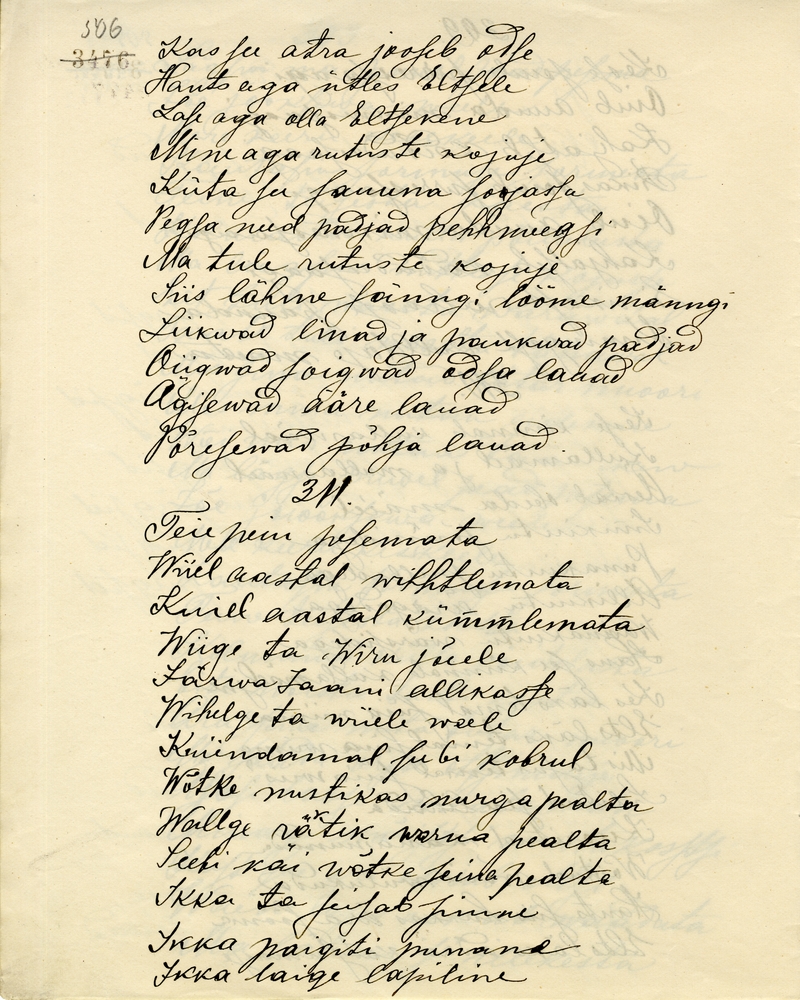 506
3476
Kas su atra jooseb otse
Hants aga ütles Eltsele
Lase aga olla Eltsekene
Mine aga rutuste kojuje
Küta su sauuna soojassa
Pegsa need padjad pehhmeegsi
Ma tule rutuste kojuje
Siis lähme sänngi lööme männgi
Liikwad linad ja paukwad padjad
Oiigwad soigwad odsa lauad
Ägisewad ääre lauad
Põresewad põhja lauad.
311.
Teie peiu pesemata
Wiiel aastal wihhtlemata
Kuiel aastal kümmlemata
Wiige ta Wiru jõele
Järwa Jaani allikasse
Wihelge ta wiiele weele
Kuiendamal subi kobrul
Wõtke nustikas nurga pealta
Wallge rätik warna pealta
Seebi käi wõtke seina pealta
Ikka ta seisab sinine
Ikka paigiti punane
Ikka laige lapiline